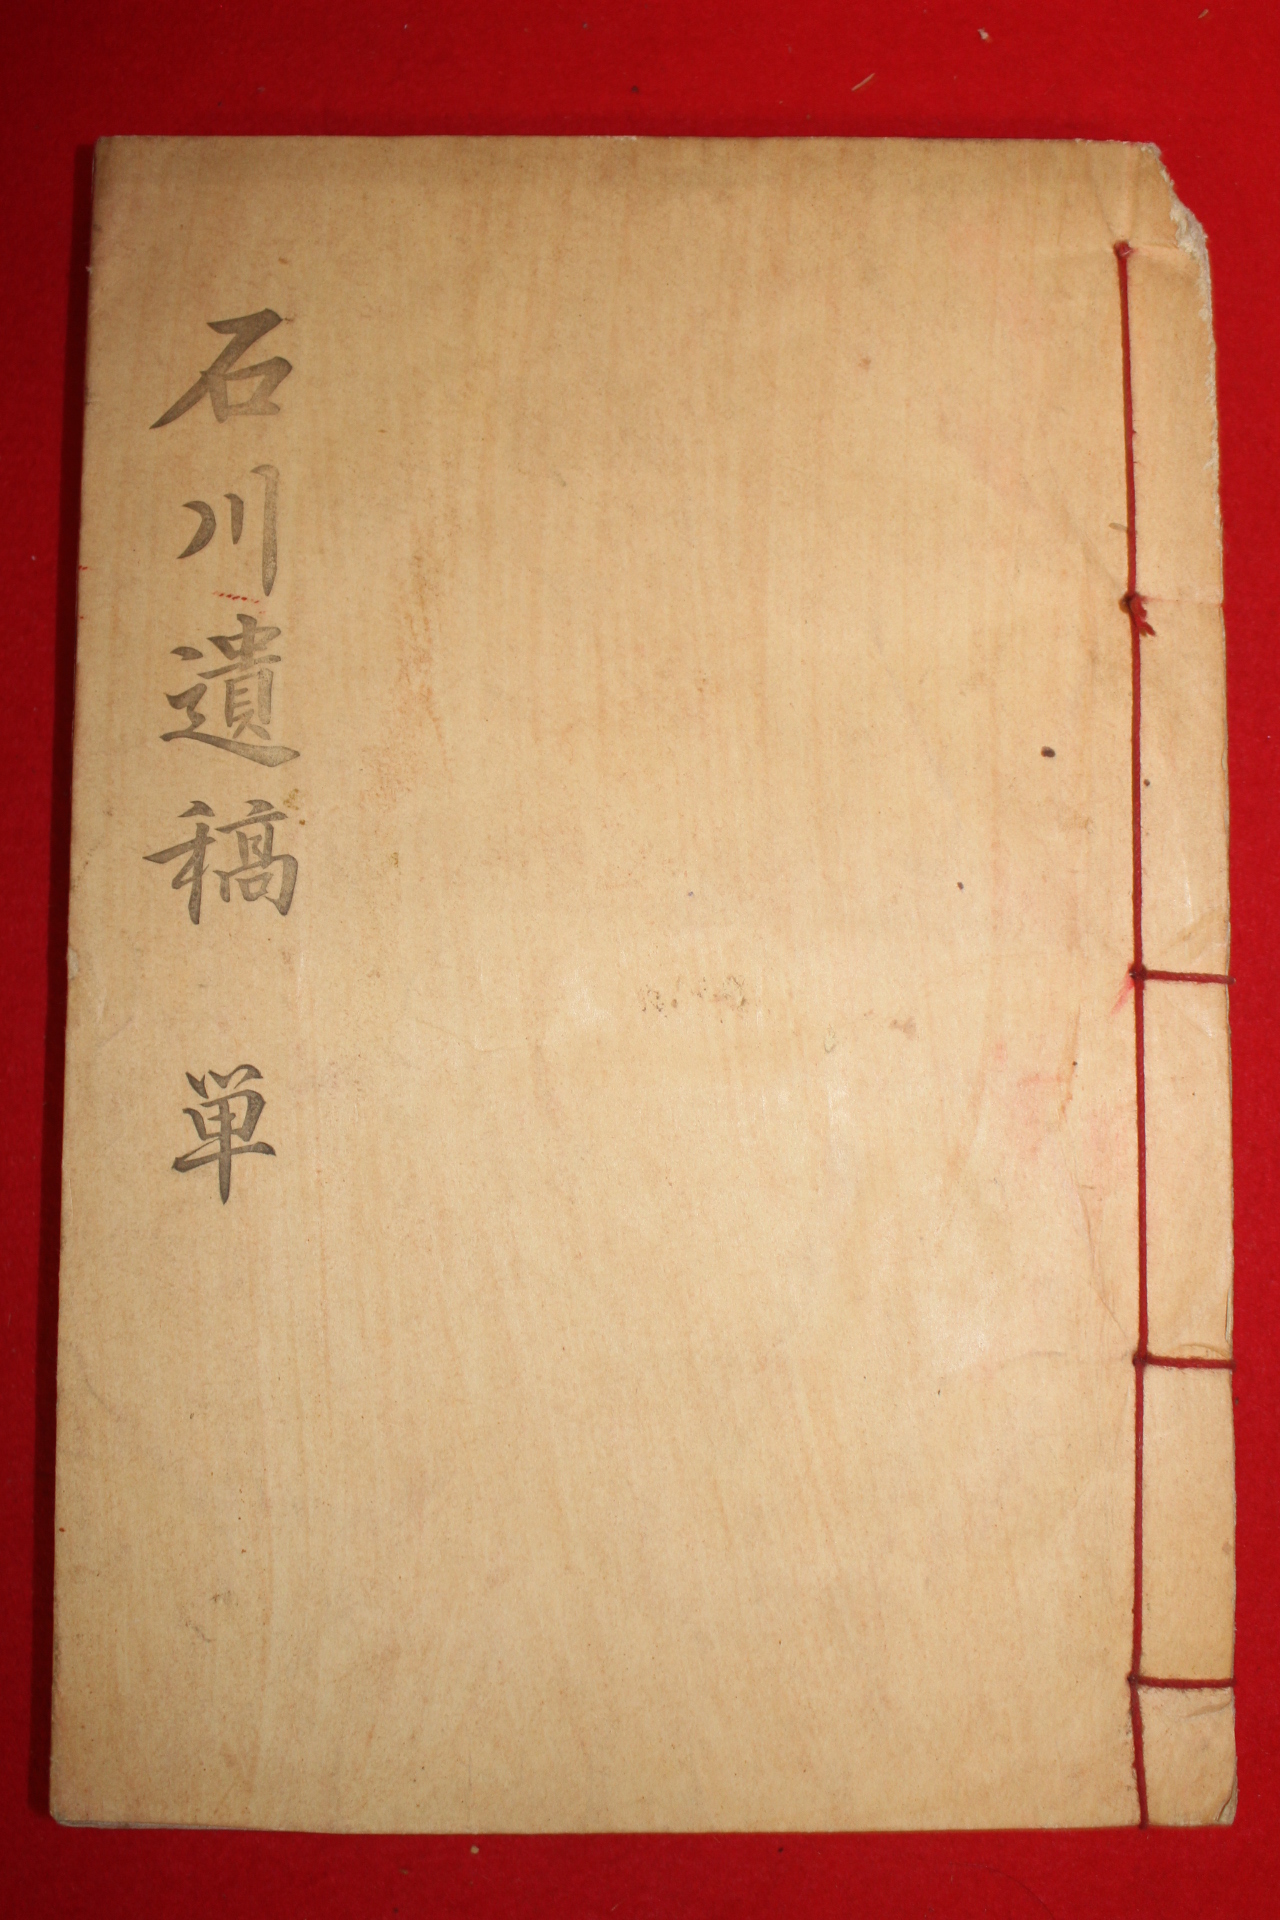 石川遺稿 单